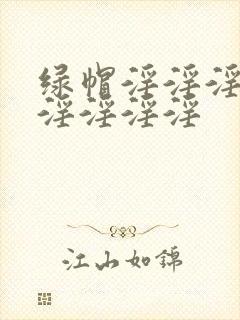 绿帽淫淫淫
淫淫淫淫
江山如锦